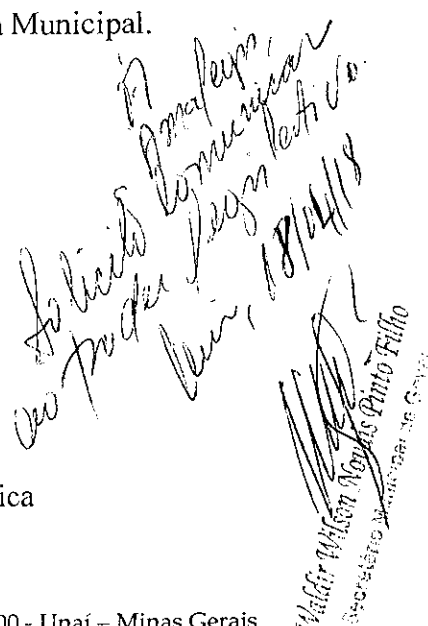 a Municipal.
À
Solicito Comunicar
ao Poder Legislativo.
18/04/18
Waldir Wilson Novais Pinto Filho
Secretário Municipal de Gover
ica
00 - Unaí – Minas Gerais